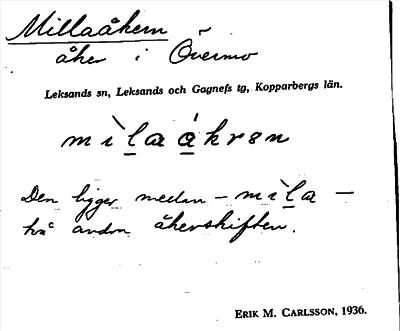 Millaåkern
åker i Övermo
Leksands sn, Leksands och Gagnefs tg, Kopparbergs län.
mìla ákrən
Den ligger medan – mìla –
två andra åkerskiften.
ERIK M. CARLSSON, 1936.